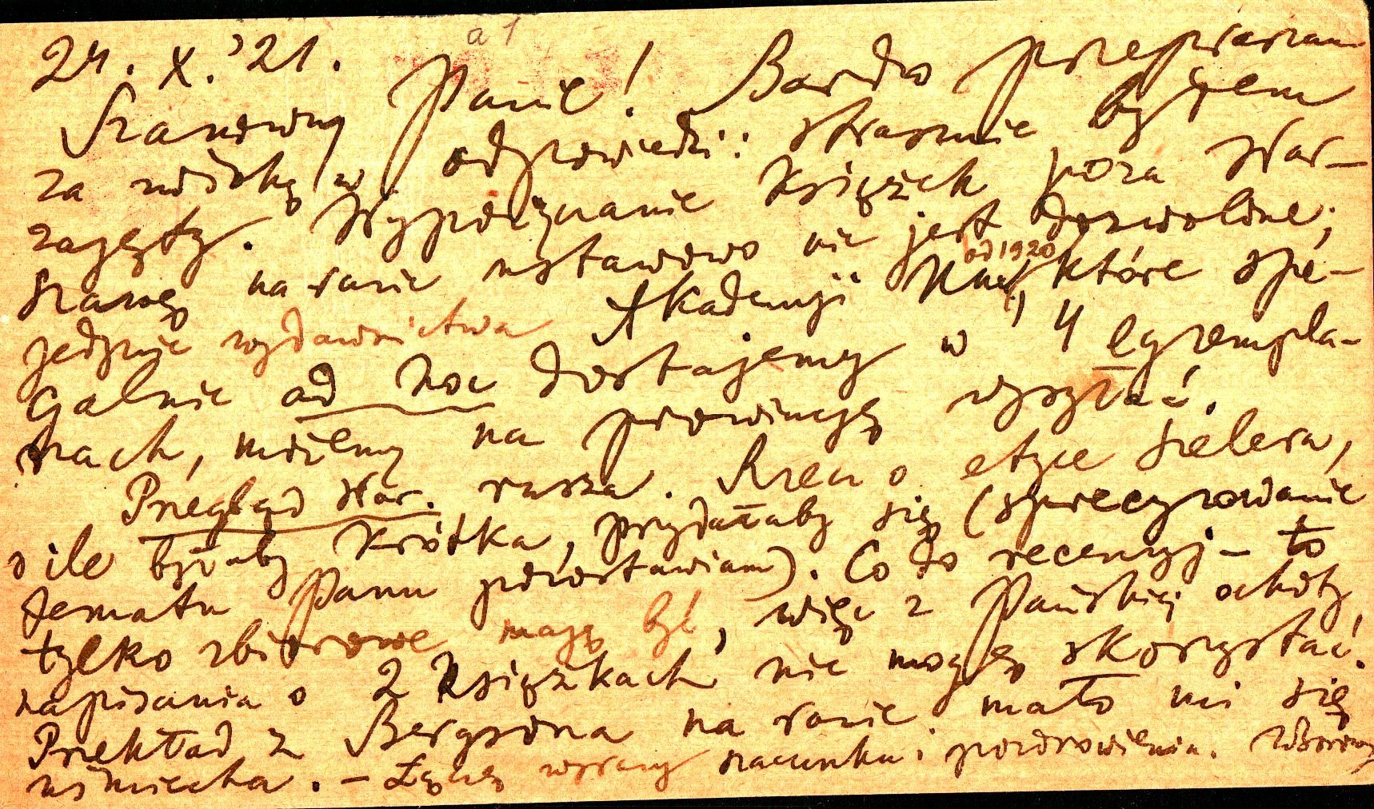 a 1
24. X. '21.
Szanowny Panie! Bardzo przepraszam
za zwłokę w odpowiedzi: strasznie byłem
zajęty. Wypożyczanie książek poza War-
szawę na razie ustawowo nie jest dozwolone;
jedynie wydawnictwa Akademji Um., które spe-
od 1920
cjalnie ad hoc dostajemy w 4 egzempla-
rzach, możemy na prowincję wysyłać.
Przegląd War. rusza. Rzecz o etyce Schelera,
o ile byłaby krótka, przydałaby się (sprecyzowanie
tematu Panu pozostawiam). Co do recenzyj – to
tylko zbiorowe mają być, więc z Pańskiej ochoty
napisania o 2 książkach nie mogę skorzystać.
Przekład z Bergsona na razie mało mi się
uśmiecha. – Łączę wyrazy szacunku i pozdrowienia.